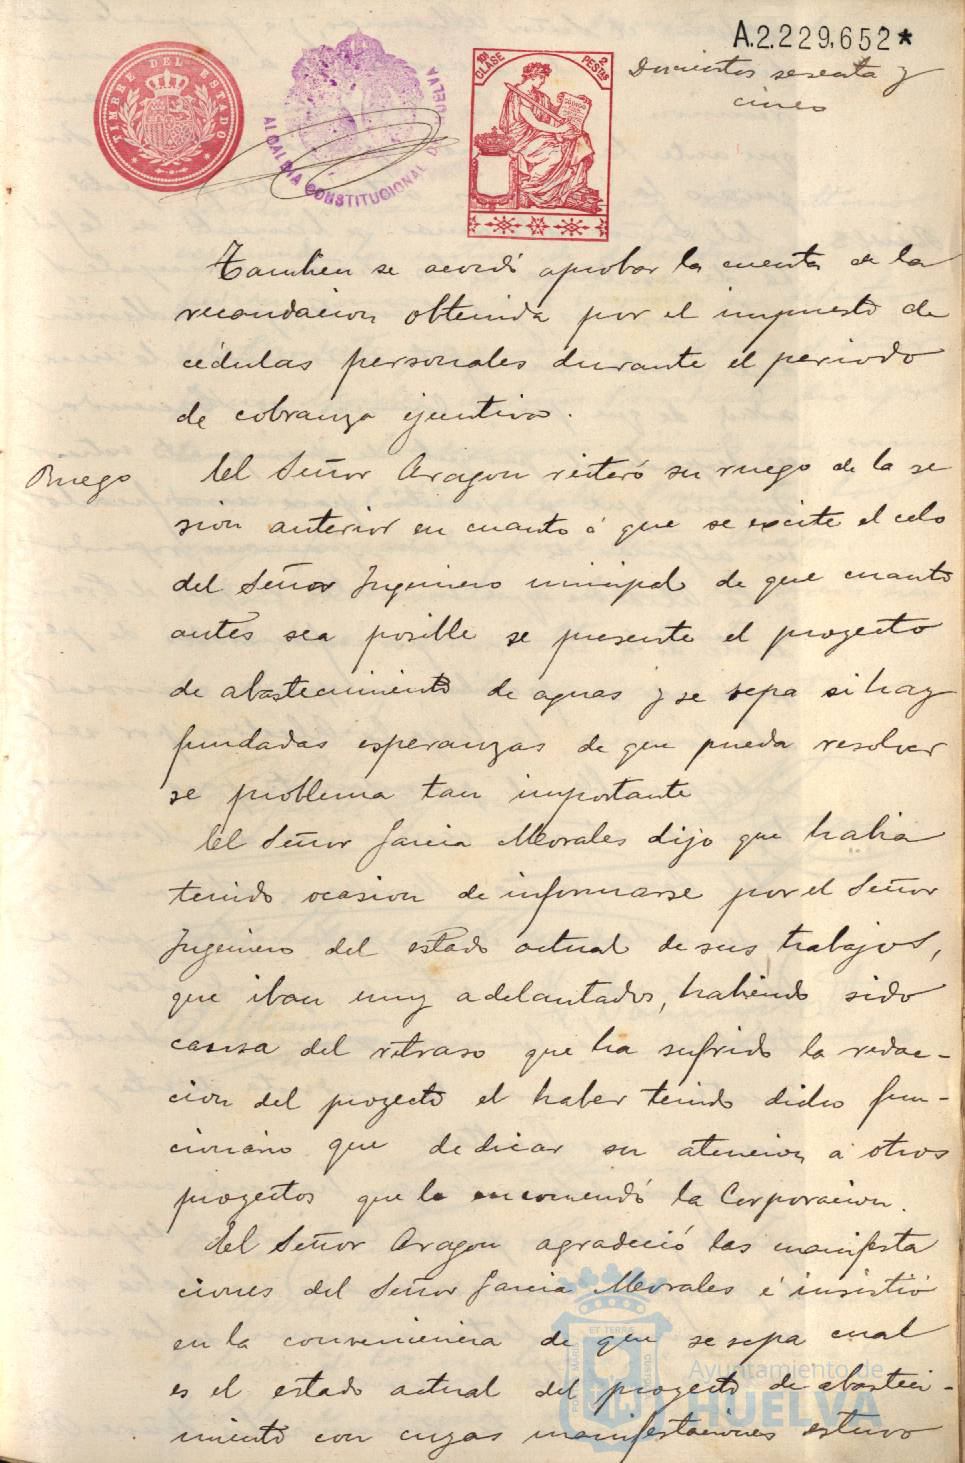 A.2.229,652*
Doscientos sesenta y
cinco
TIMBRE DEL ESTADO
ALCALDIA CONSTITUCIONAL DE HUELVA
10ª CLASE
2 PESTAS
Tambien se acordó aprobar la cuenta de la
recaudacion obtenida por el impuesto de
cédulas personales durante el periodo
de cobranza ejecutiva.
Ruego
El Señor Aragon reiteró su ruego de la se
sion anterior en cuanto á que se excite el celo
del Señor Ingeniero municipal de que cuanto
antes sea posible se presente el proyecto
de abastecimiento de aguas y se sepa si hay
fundadas esperanzas de que pueda resolver
se problema tan importante
El Señor Garcia Morales dijo que habia
tenido ocasion de informarse por el Señor
Ingeniero del estado actual de sus trabajos,
que iban muy adelantados, habiendo sido
causa del retraso que ha sufrido la redac-
cion del proyecto el haber tenido dicho fun-
cionario que dedicar su atencion á otros
proyectos que le encomendó la Corporacion.
El Señor Aragon agradeció las manifesta
ciones del Señor Garcia Morales é insistió
en la conveniencia de que se sepa cual
es el estado actual del proyecto de abasteci-
miento con cuyas manifestaciones estuvo
Ayuntamiento de
HUELVA